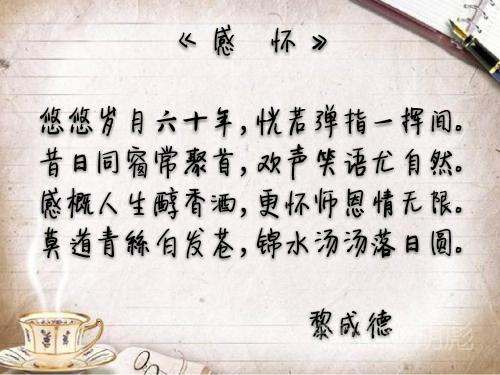 《感 怀》
悠悠岁月六十年,恍若弹指一挥间。
昔日同窗常聚首,欢声笑语尤自然。
感概人生醇香酒,更怀师恩情无限。
莫道青絲白发苍,锦水汤汤落日圆。
黎成德